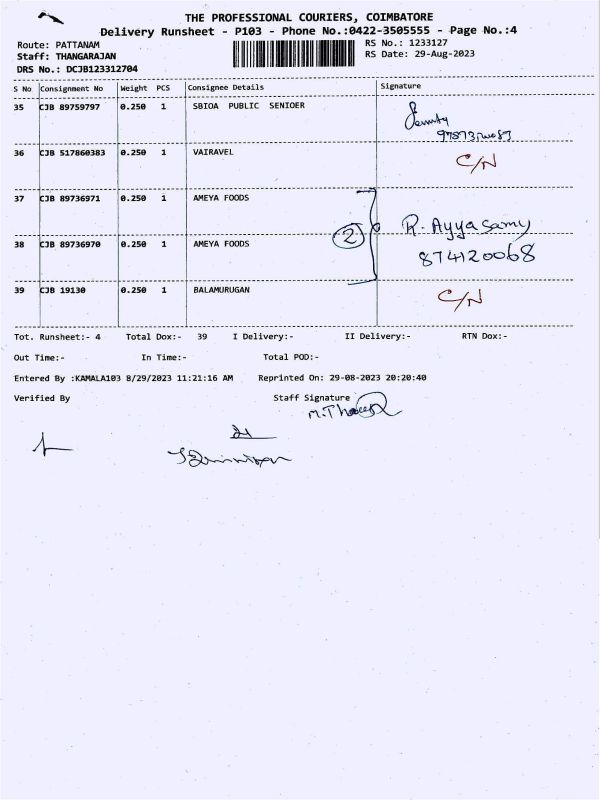 THE PROFESSIONAL COURIERS, COIMBATORE
Delivery Runsheet - P103 - Phone No.:0422-3505555 - Page No.:4
Route: PATTANAM RS No.: 1233127
Staff: THANGARAJAN RS Date: 29-Aug-2023
DRS No.: DCJB123312704
S No Consignment No Weight PCS Consignee Details Signature
35 CJB 89759797 0.250 1 SBIOA PUBLIC SENIOER
36 CJB 517860383 0.250 1 VAIRAVEL C/N
37 CJB 89736971 0.250 1 AMEYA FOODS
2 R. Ayyasamy
38 CJB 89736970 0.250 1 AMEYA FOODS 874120068
39 CJB 19130 0.250 1 BALAMURUGAN C/N
Tot. Runsheet:- 4 Total Dox:- 39 I Delivery:- II Delivery:- RTN Dox:-
Out Time:- In Time:- Total POD:-
Entered By :KAMALA103 8/29/2023 11:21:16 AM Reprinted On: 29-08-2023 20:20:40
Verified By Staff Signature